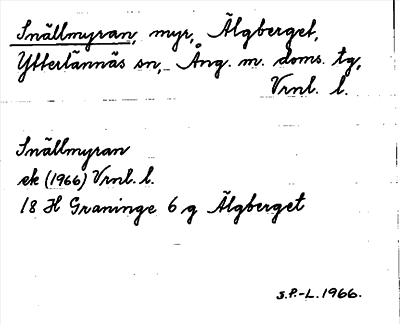 Snällmyran, myr, Älgberget,
Ytterlännäs sn, Ång. m. doms. tg,
Vrnl. l.
Snällmyran
ek (1966) Vrnl. l.
18 H Graninge 6 g Älgberget
S.P.-L. 1966.